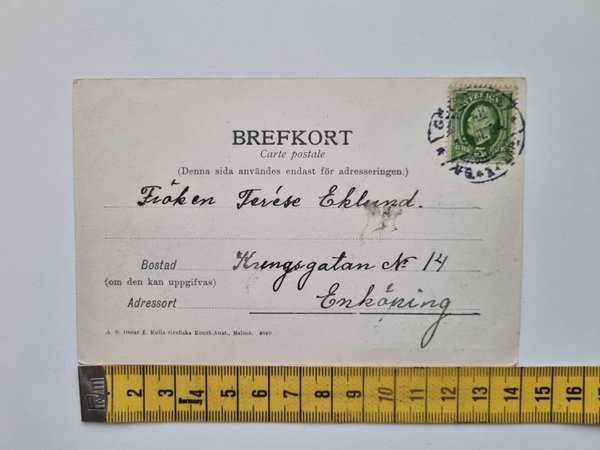 BREFKORT
Carte postale
(Denna sida användes endast för adresseringen.)
Fröken Terése Eklund.
Bostad Kungsgatan № 14
(om den kan uppgifvas)
Adressort Enköping
A. B. Oscar E. Kulle Grafiska Konst-Anst., Malmö. 4049
2 3 4 5 6 7 8 9 10 11 12 13 14 15 16
Germany